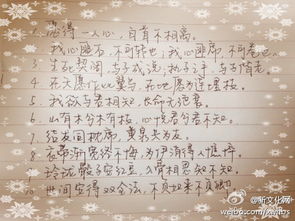 1. 愿得一人心,白首不相离。
2. 我心匪石,不可转也;我心匪席,不可卷也。
3. 生死契阔,与子成说;执子之手,与子偕老。
4. 在天愿作比翼鸟,在地愿为连理枝。
5. 我欲与君相知,长命无绝衰。
6. 山有木兮木有枝,心悦君兮君不知。
7. 结发同枕席,黄泉共为友。
8. 衣带渐宽终不悔,为伊消得人憔悴。
9. 玲珑骰子安红豆,入骨相思知不知。
10. 世间安得双全法,不负如来不负卿。
@新文化网
weibo.com/xwhwb